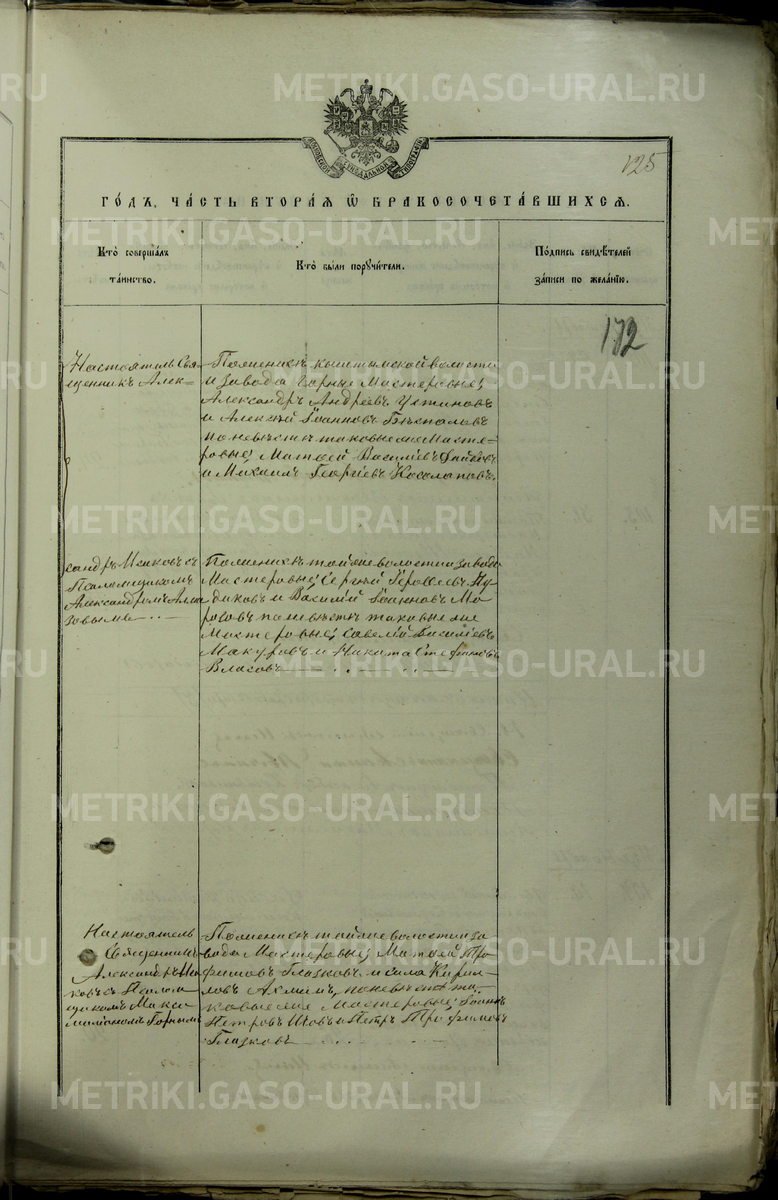 METRIKI.GASO-URAL.RU
МОСКОВСКОЙ СѴНОДАЛЬНОЙ ТИПОГРАФІИ
125
ГО́ДЪ, ЧА́СТЬ ВТОРА́Я Ѡ БРАКОСОЧЕТА́ВШИХСЯ.
Кто̀ соверша́лъ
та́инство.
Кто̀ бы́ли поручи́тели.
По́дпись свидѣ́телей
за́писи по жела́нїю.
172
Настоятель Свя-
щенникъ Алек-
По женихѣ кыштымской волости
и завода Горные Мастеровые;
Александръ Андреевъ Устиновъ
и Алексѣй Іоанновъ
по невѣстѣ таковые же Масте-
ровые; Матвей Василіевъ
и Михаилъ Георгіевъ Косолаповъ.
сандръ съ
Псаломщикомъ
Александромъ Алма
зовымъ
По женихѣ той же волости и завода
Мастеровые; Сергѣй
и Василій Іоанновъ Мо
розовъ по невѣстѣ таковые же
Мастеровые; Савелій Василіевъ
Макуровъ и Никита Стефановъ
Власовъ
Настоятель
Священникъ
Александръ
съ Псалом
щикомъ Макси
миліаномъ Горнымъ
По женихѣ той же волости и за
вода Мастеровые; Матвей Тро
фимовъ Глазковъ и Сила Кирил
ловъ по невѣстѣ та
ковые же Мастеровые; Іоаннъ
Петровъ и Петръ Трофимовъ
Глазковъ